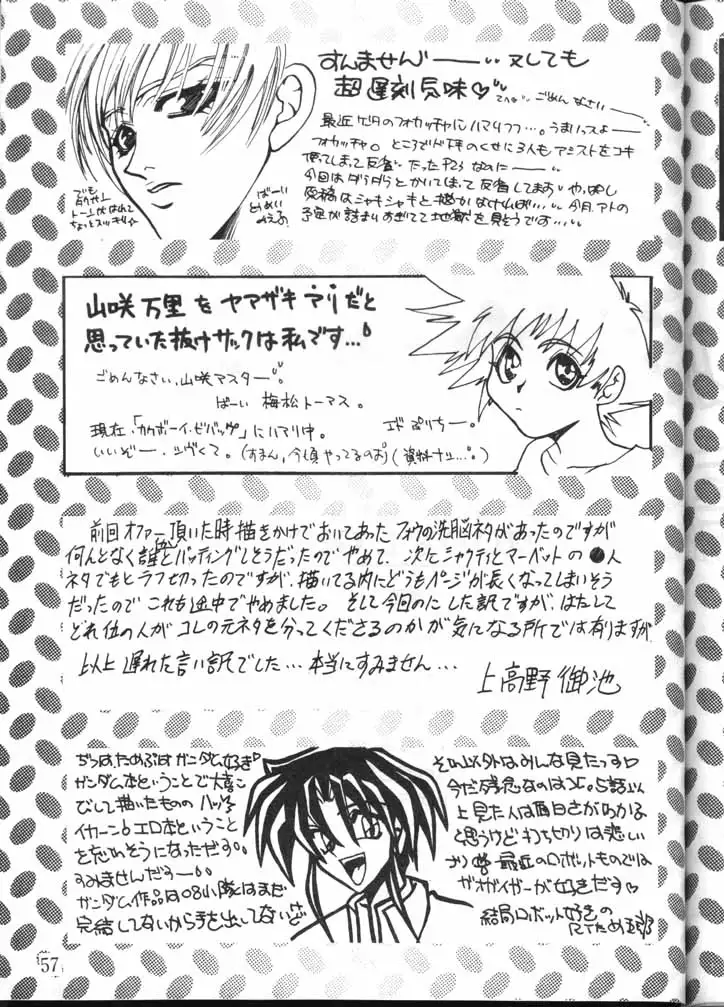 すんませんーー 又しても
超遅刻気味♡ ごめんなさいーー
最近 のフォカッチャにハマりつつ…。うまいっスよー
フォカッチャ。ところでド下手のくせに3人もアシストをコキ
使ってしまって反省 だったP23なのにーー
今回はダラダラとかいてしまって反省してます やっぱし
原稿はシャキシャキと描かなければ… 今月アトの
予定が詰まりすぎてて地獄を見そうです…
でも
トーンがはれて
ちょっとスッキリ
山咲 万里 を ヤマザキ マリ だと
思っていた抜けサックは私です…
ごめんなさい、山咲マスター
ばーい 梅松トーマス。
現在、「カウボーイ・ビバップ」にハマり中。
いいぞー、シヴくて。(すまん、今頃やってるのよ)(資料ナッ…。)
エド ぷりちー。
前回オファー頂いた時描きかけでおいてあったフォウの洗脳ネタがあったのですが
何んとなく誰かとバッティングしそうだったのでやめて、次にシャクティとマーベットの●人
ネタでもとラフ切ったのですが、描いてる内にどうもページが長くなってしまいそう
だったので これも途中でやめました。そして今回のにした訳ですが、はたして
どれ位の人が コレの元ネタを分ってくださるのかが気になる所では有りますが
以上 遅れた言い訳でした…本当にすみません…
上高野 御池
ぢつはためぶはガンダム好き
ガンダム本ということで大喜
びして描いたものの ハッ!
イカーンっエロ本ということ
を忘れそうになっただす
すみませんだすーー
ガンダム作品は08小隊はまだ
完結してないから手を出してない
それ以外はみんな見たっす
今だ残念なのは 。5話以上
見た人は面白さがわかる
と思うけど わちきりは悲しい
最近のロボットものでは
ガオガイガーが好きだす♡
結局ロボット好きの
RTため五郎
57